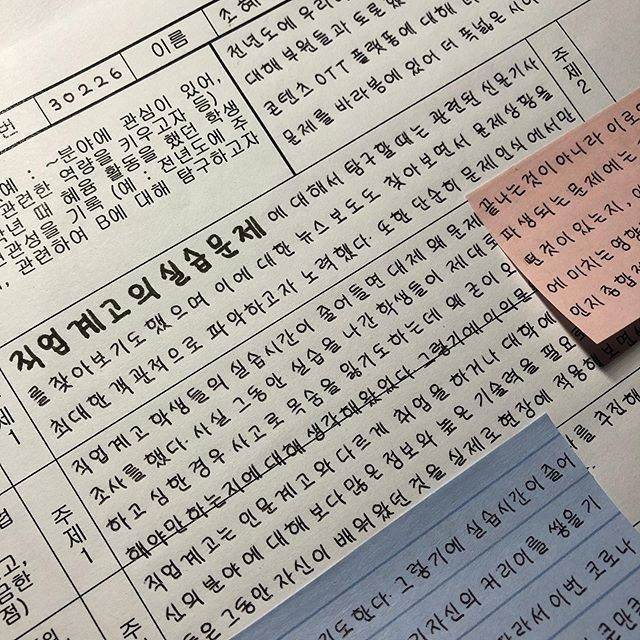 번
30226
이름
조혜
전년도에 우리
대해 부원들과 토론했
콘텐츠 OTT 플랫폼에 대해 더
문제를 바라봄에 있어 더 폭넓은 시야
예 : ~분야에 관심이 있어,
관련한 역량을 키우고자
학년 때 해움 활동을 했던 학생
관성을 기록 (예 : 전년도에 주
관련하여 B에 대해 탐구하고자
주제2
직업계고의 실습문제에 대해서 탐구할 때는 관련된 신문기사
를 찾아보기도 했으며 이에 대한 뉴스보도도 찾아보면서 문제상황을
최대한 객관적으로 파악하고자 노력했다. 또한 단순히 문제인식에서만
주제1
끝나는것이 아니라 이로
파생되는 문제에는
떤 것이 있는지,
에 미치는 영향
인지 종합적
직업계고 학생들의 실습시간이 줄어들면 대체 왜 문제
조사를 했다. 사실 그동안 실습을 나간 학생들이 제대로
하고 심한 경우 사고로 목숨을 잃기도 하는데 왜 굳이
해야만 하는지에 대해 생각해왔었다 그렇기에 의외로
직업계고는 인문계고와 다르게 취업을 하거나 대학에
신의 분야에 대해 보다 많은 정보와 높은 기술력을 필요로
들은 그동안 자신이 배워왔던 것을 실제로 현장에 적용해보면
주제1
를 추진해
기도 한다. 그렇기에 실습시간이 줄어
자신의 커리어를 쌓을 기
따라서 이번 코로나